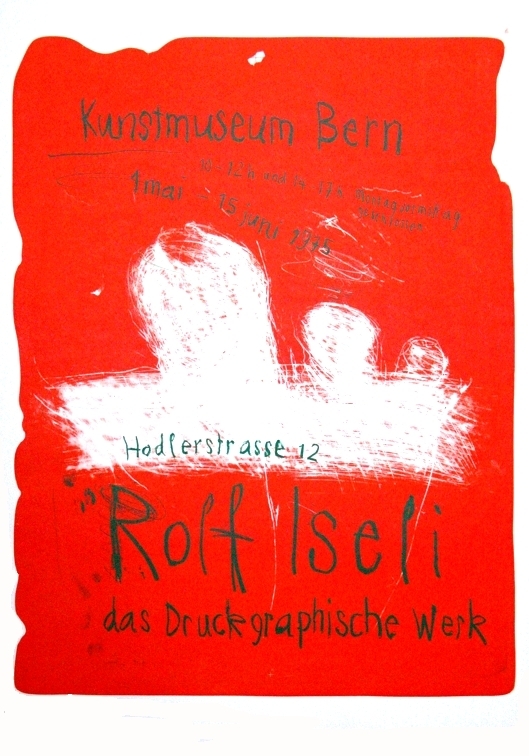 Kunstmuseum Bern
10 - 12 h und 14 - 17 h
1 mai - 15 juni 1975
Hodlerstrasse 12
Rolf Iseli
das Druckgraphische Werk